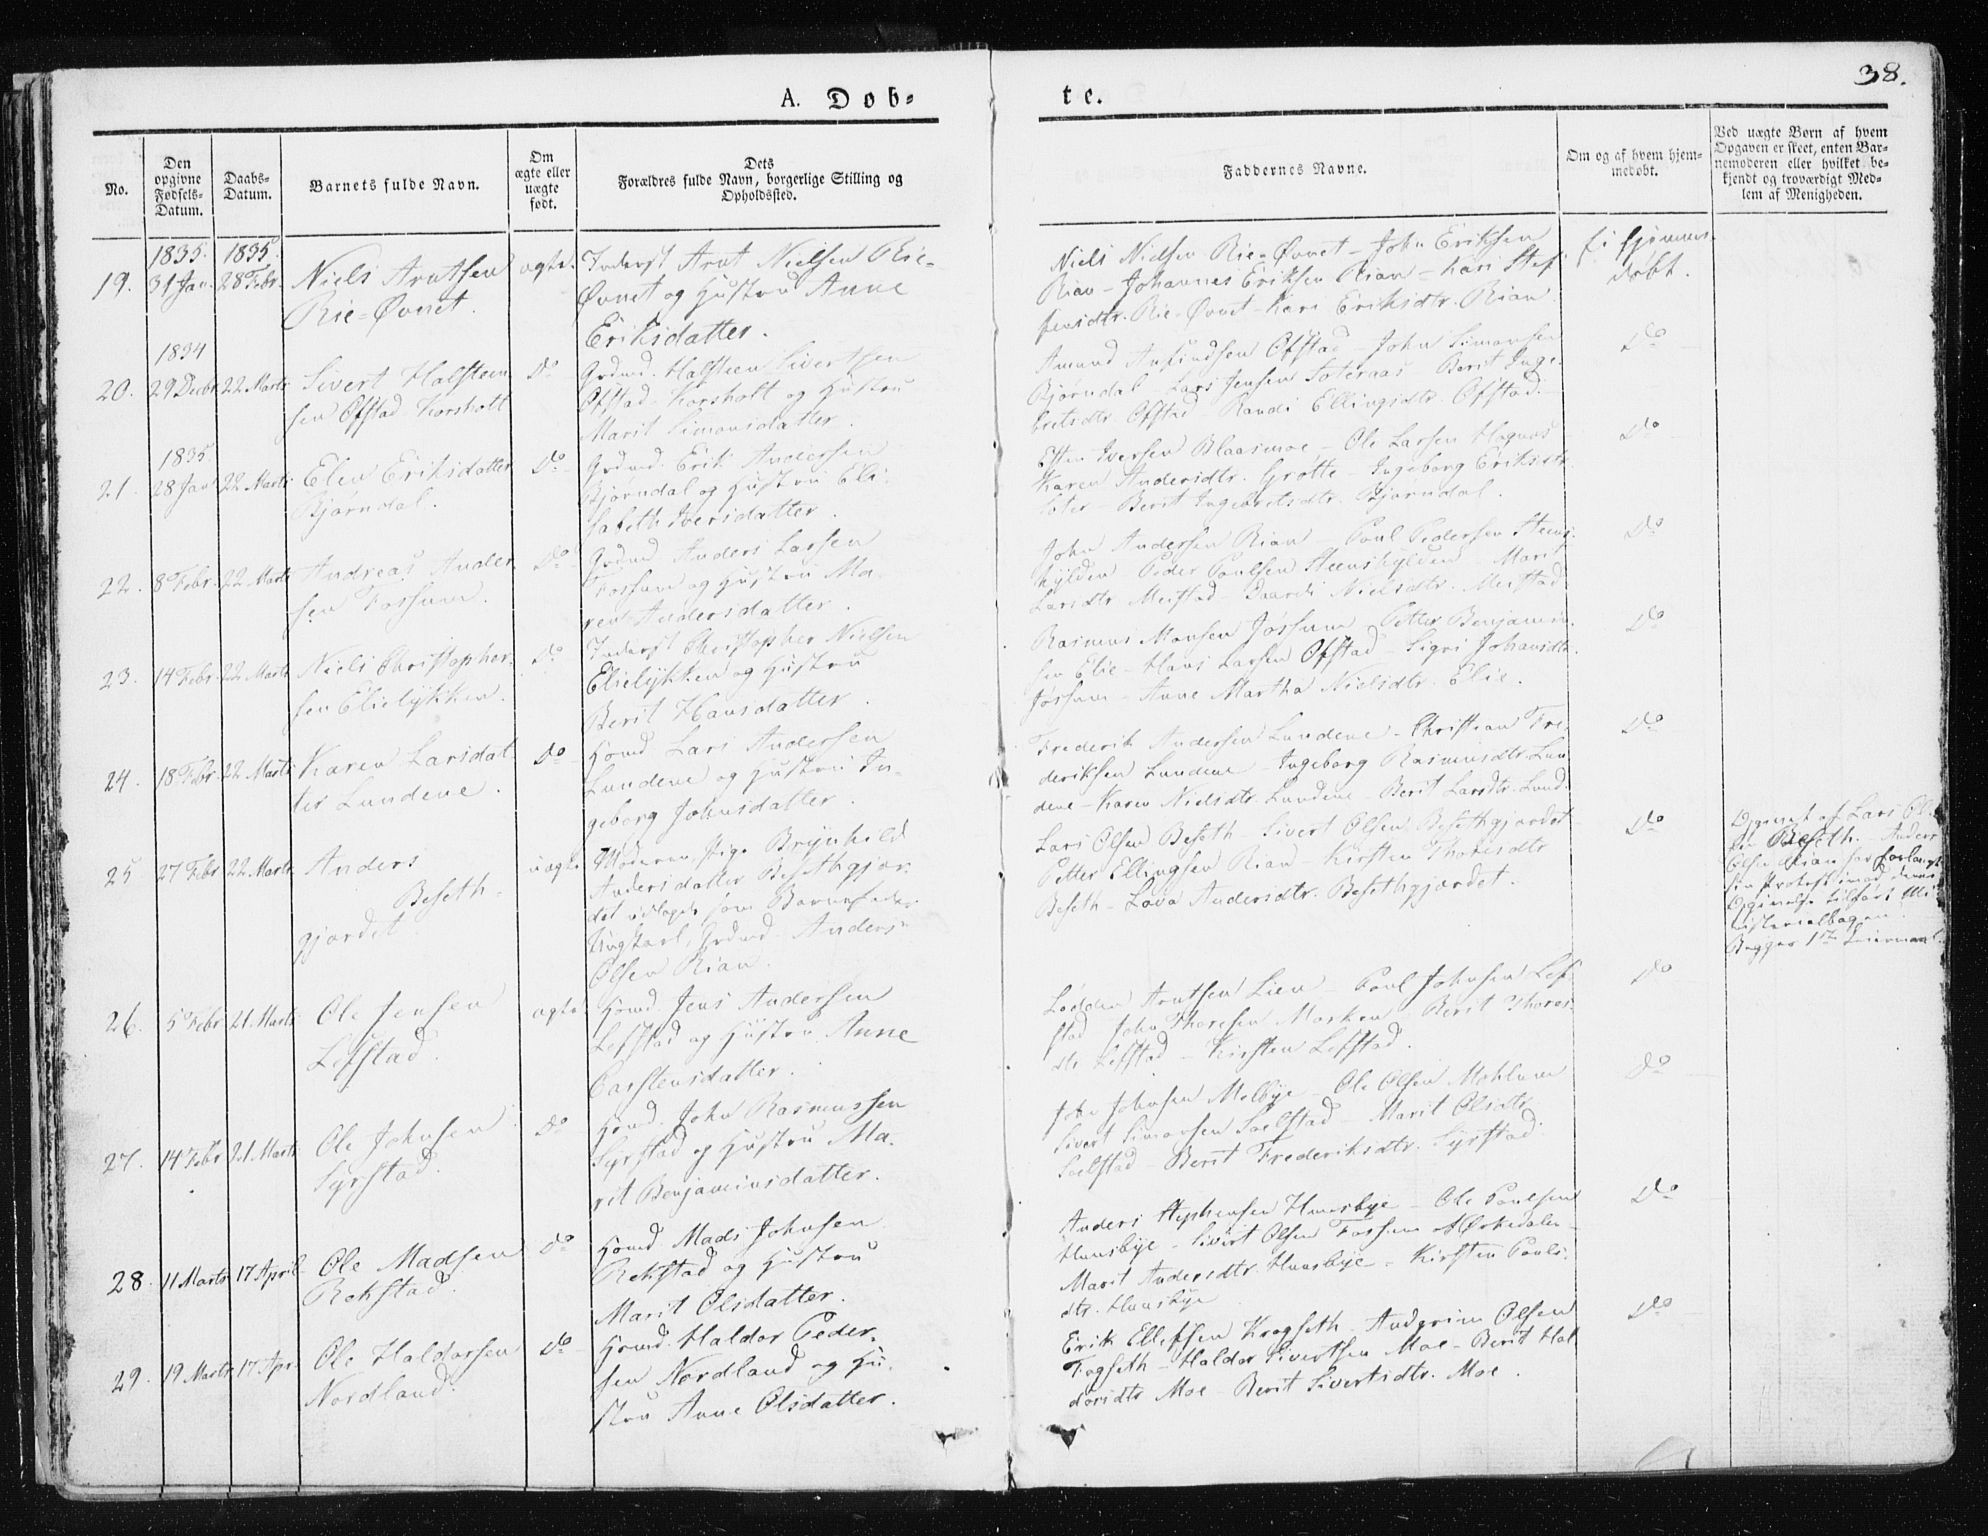 38.
A. Døb-
te.
No.
Den opgivne Fødsels-Datum.
Daabs-Datum.
Barnets fulde Navn.
Om ægte eller uægte født.
Dets Forældres fulde Navn, borgerlige Stilling og Opholdssted.
Faddernes Navne.
Om og af hvem hjem-medøbt.
Ved uægte Børn af hvem
Opgaven er skeet, enten Bar-
nemoderen eller hvilket be-
kjendt og troværdigt Med-
lem af Menigheden.
1835. 1835.
19. 31 Jan. 28 Febr. Niels Arntsen
Rie-Øvnet.
ægte. Inderst Arnt Nielsen Rie-
Øvnet og Hustru Anne
Eriksdatter.
Niels Nielsen Rie-Øvnet - John Eriksen
Rian - Johannes Eriksen Rian - Kari Stef-
fensdtr. Rie-Øvnet - Kari Eriksdtr. Rian
Ei hjemme-
døbt.
1834
20. 29 Decbr 22 Marts Sivert Halsteen-
sen Ofstad Korsholt
Do Grdmd. Halsteen Sivertsen
Ofstad Korsholt og Hustru
Marit Simonsdatter.
Amund Anfindsen Ofstad - John Simonsen
Bjørndal - Lars Jensen Soteraas - Berit Inge-
bretsdtr. Ofstad - Randi Ellingsdtr. Ofstad.
Do
1835
21. 28 Jan 22 Marts Elen Eriksdatter
Bjørndal.
Do Grdmd. Erik Andersen
Bjørndal og Hustru Eli-
sabeth Iversdatter.
Iversen Blaasmoe - Ole Larsen Hognæs
Karen Andersdtr. Grøtte - Ingeborg Eriksdtr
- Berit Ingebretsdtr. Bjørndal.
Do
22. 8 Febr. 22 Marts Andreas Ander-
sen Fossum.
Do Grdmd. Anders Larsen
Fossum og Hustru Ma-
ren Andersdatter.
John Andersen Rian - Poul Pedersen Steens-
hylden Peder Poulsen Steenshylden - Marit
Larsdtr Meistad - Nielsdtr. Meistad
Do
23. 14 Febr. 22 Marts Niels Christopher-
sen Elielykken.
Do Inderst Christopher Nielsen
Elielykken og Hustru
Berit Hansdatter.
Rasmus Monsen Jossum - Petter Benjamin-
sen Elie - Hans Larsen Ofstad - Sigri Johansdtr.
Jossum - Anne Martha Nielsdtr. Elie.
Do
24. 18 Febr 22 Marts Karen Larsdat-
ter Lundene.
Do Hsmd Lars Andersen
Lundene og Hustru In-
geborg Johnsdatter.
Frederik Andersen Lundene - Christian Fre-
deriksen Lundene - Ingeborg Rasmusdtr. Lun-
dene - Karen Nielsdtr. Lundene - Berit Larsdtr. Lund.
Do
25 27 Febr 22 Marts Anders
Beseth-
gjærdet.
uægte Moderen, Pige Brynhild
Andersdatter Besethgjær-
det udlagde som Barnefader
Ungkarl, Grdmd. Anders
Olsen Rian.
Lars Olsen Beseth - Sivert Olsen Besethgjærdet
Petter Ellingsen Rian - Kirsten Thoresdtr
Beseth - Lova Andersdtr. Besethgjærdet.
Do
Opgivet af Lars Ol-
sen Beseth. - Anders
Olsen Rian har forlangt
sin Protest imod denne
Opgivelse tilført Mi-
nisterialbogen.
Begges 1te Leiermaal.
26. 5 Febr 21 Marts Ole Jensen
Lefstad.
ægte Hsmd. Jens Andersen
Lefstad og Hustru Anne
Carstensdatter.
Lodden Arntsen Lien - Poul Johnsen Lef-
stad John Thoresen Morken - Berit Thores-
dtr Lefstad - Kirsten Lefstad.
Do
27. 14 Febr 21 Marts Ole Johnsen
Syrstad.
Do Hsmd. John Rasmussen
Syrstad og Hustru Ma-
rit Benjaminsdatter.
John Johnsen Melbye - Ole Olsen Mohlum
Sivert Simonsen Soelstad - Marit Olsdtr
Soelstad - Berit Frederiksdtr. Syrstad.
Do
28. 11 Marts 17 April Ole Madsen
Rokstad.
Do Hsmd. Mads Johnsen
Rokstad og Hustru
Marit Olsdatter.
Anders Stephensen Huusbye - Ole Poulsen
Huusbye - Sivert Olsen Fossum Ørkedalen -
Marit Andersdtr. Huusbye - Kirsten Pouls-
dtr. Huusbye
Do
29. 19 Marts 17 Apr. Ole Haldorsen
Nordland.
Do Hsmd. Haldor Peder-
sen Nordland og Hu-
stru Anne Olsdatter.
Erik Ellefsen Krogseth - Andgrim Olsen
Fogseth - Haldor Sivertsen Moe - Berit Hal-
dorsdtr Moe - Berit Sivertsdtr. Moe.
Do